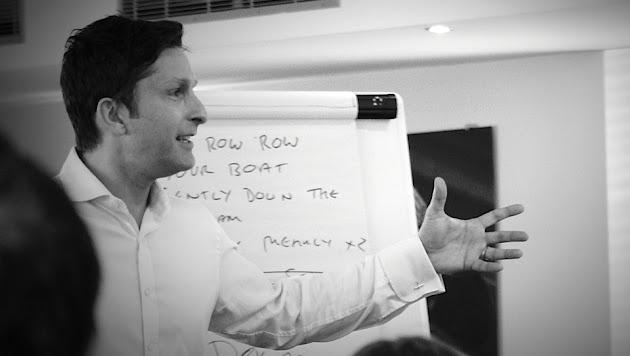 ROW ROW
OUR BOAT
ENTLY DOWN THE
AM
MERRILY x2